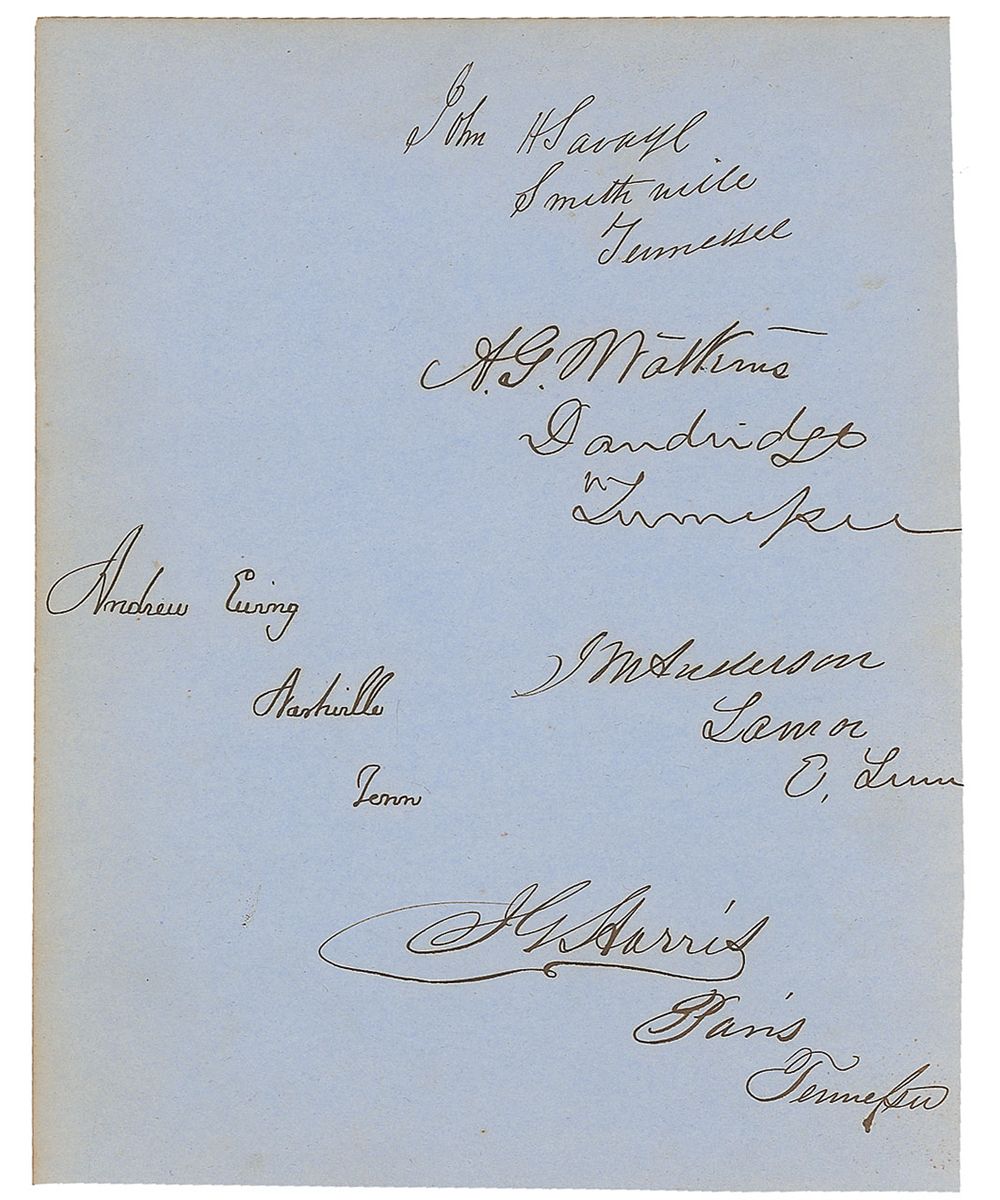 John H Savage
Smithville
Tennessee
A.G. Watkins
Dandridge
Tennessee
Andrew Ewing
Nashville
Tenn
J M Anderson
Lamar
E, Tenn
I G Harris
Paris
Tennessee